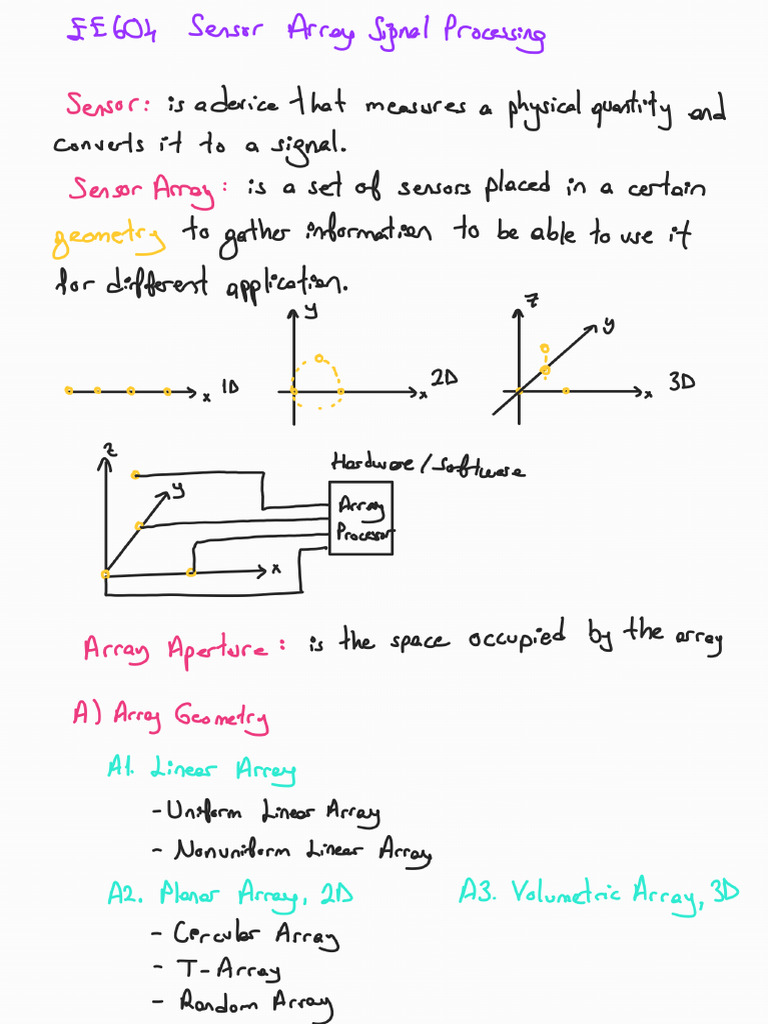 EE604 Sensor Array Signal Processing
Sensor: is a device that measures a physical quantity and
converts it to a signal.
Sensor Array: is a set of sensors placed in a certain
geometry to gather information to be able to use it
for different application.
x 1D
y
x 2D
z
y
x 3D
z
y
x
Hardware/Software
Array
Procesor
Array Aperture: is the space occupied by the array
A) Array Geometry
A1. Linear Array
- Uniform Linear Array
- Nonuniform Linear Array
A2. Planar Array, 2D
- Cercular Array
- T-Array
- Random Array
A3. Volumetric Array, 3D